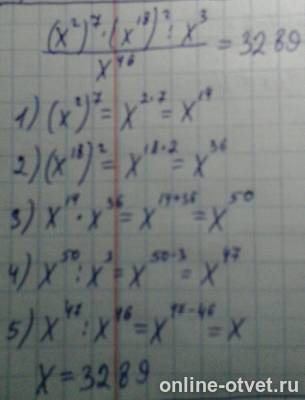 (x²)⁷·(x¹⁸)² : x³
――――――――― = 3289
x⁴⁶
1) (x²)⁷ = x²·⁷ = x¹⁴
2) (x¹⁸)² = x¹⁸·² = x³⁶
3) x¹⁴ · x³⁶ = x¹⁴⁺³⁶ = x⁵⁰
4) x⁵⁰ : x³ = x⁵⁰⁻³ = x⁴⁷
5) x⁴⁷ : x⁴⁶ = x⁴⁷⁻⁴⁶ = x
x = 3289
online-otvet.ru